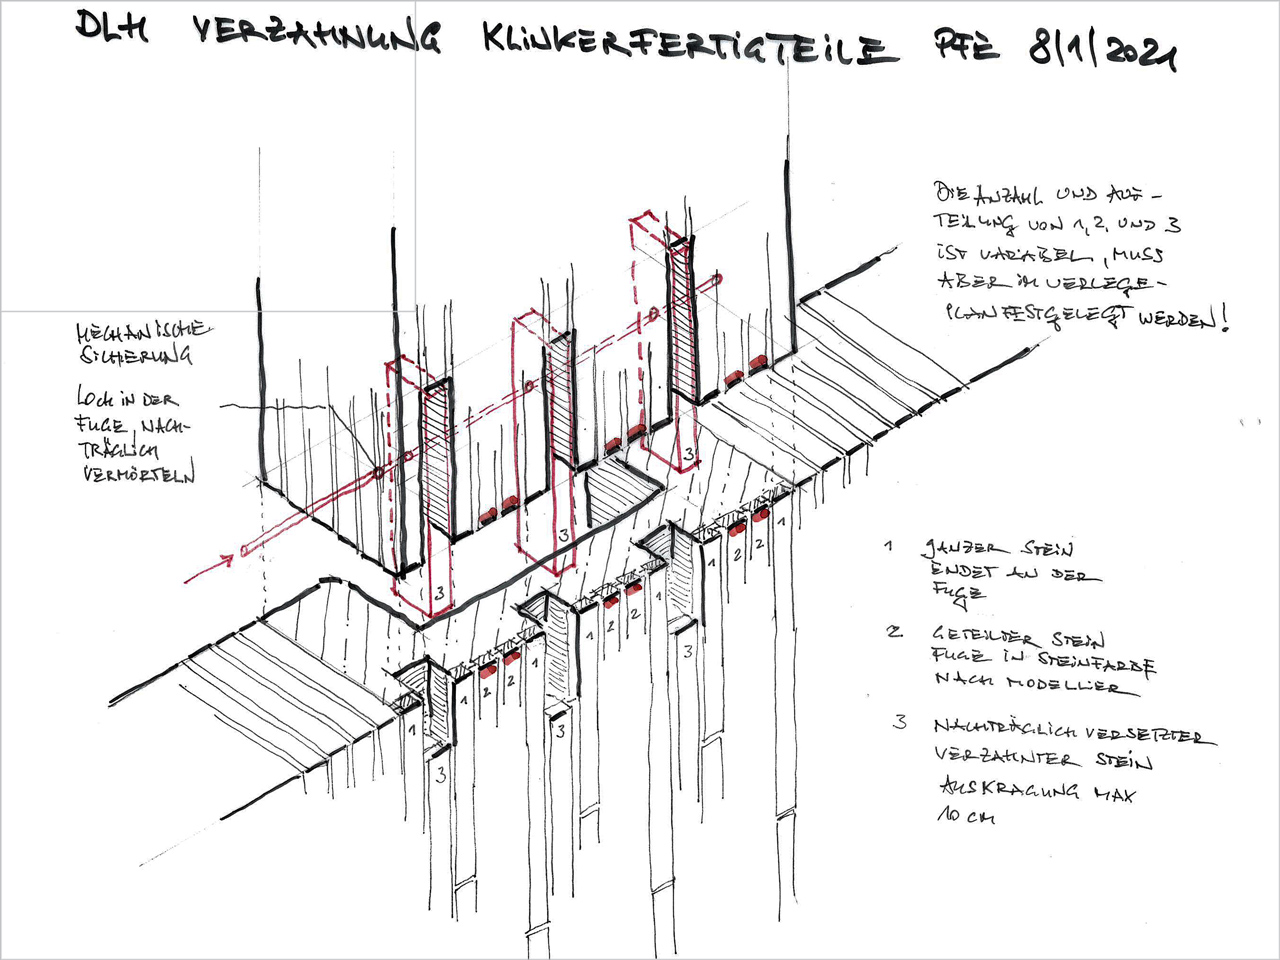 DLH VERZAHNUNG KLINKERFERTIGTEILE PFE 8/1/2021
DIE ANZAHL UND AUF-
TEILUNG VON 1, 2, UND 3
IST VARIABEL, MUSS
ABER IM VERLEGE-
PLAN FESTGELEGT WERDEN!
MECHANISCHE
SICHERUNG
LOCH IN DER
FUGE, NACH-
TRÄGLICH
VERMÖRTELN
3
3
3
1 GANZER STEIN
ENDET AN DER
FUGE
2 GETEILTER STEIN
FUGE IN STEINFARBE
NACH MODELLIER
3 NACHTRÄGLICH VERSETZTER
VERZAHNTER STEIN
AUSKRAGUNG MAX
10 CM
1 2 2 1
1 2 2 1
1 2 2 1
1
3
3
3